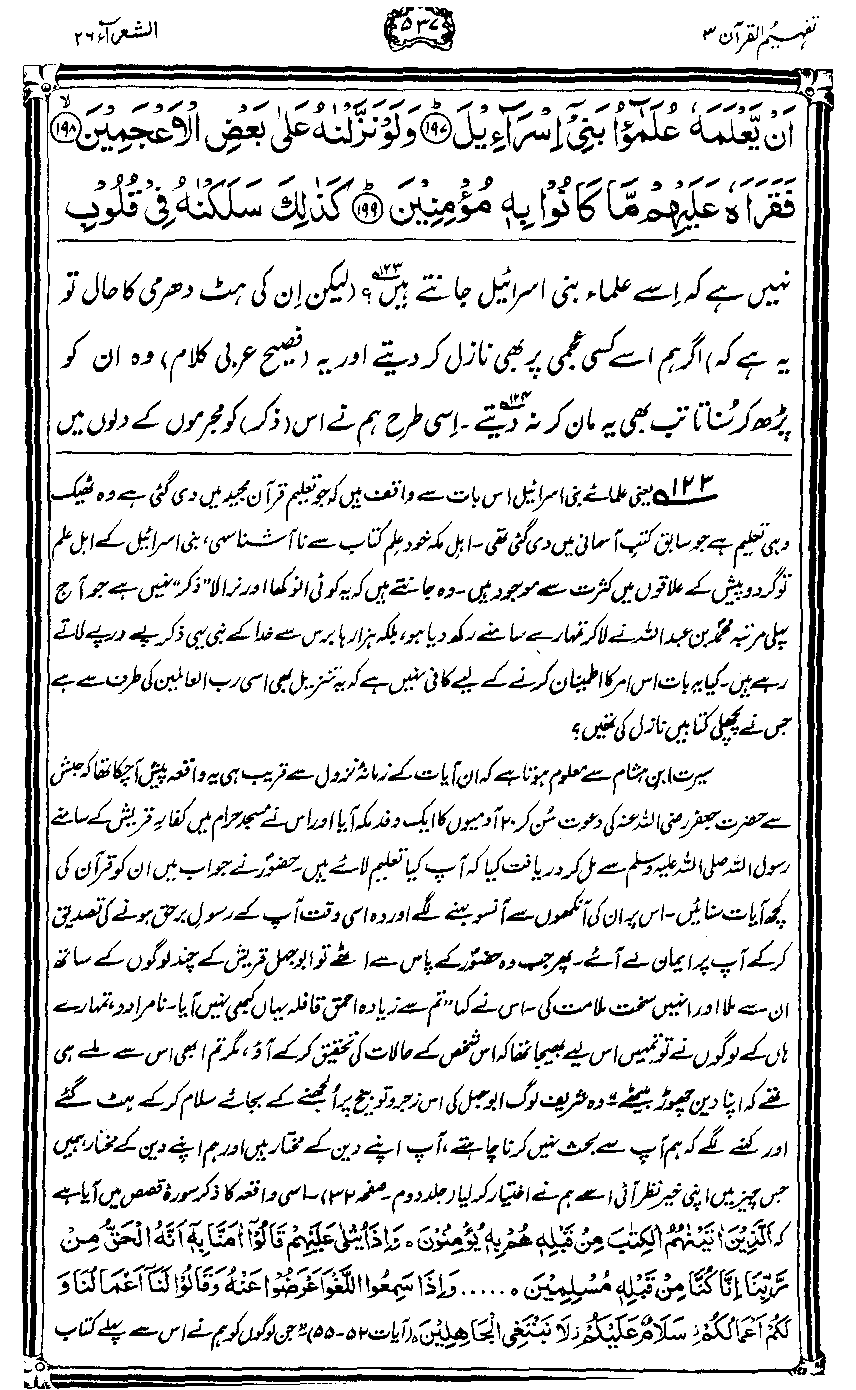 تفہیم القرآن ۳
۵۳۷
الشعراء ۲۶
اَنْ يَّعْلَمَهٗ عُلَمٰٓؤُا بَنِيْٓ اِسْرَآءِيْلَ ﴿۱۹۷﴾ وَلَوْ نَزَّلْنٰهُ عَلٰى بَعْضِ الْاَعْجَمِيْنَ ﴿۱۹۸﴾
فَقَرَاَهٗ عَلَيْهِمْ مَّا كَانُوْا بِهٖ مُؤْمِنِيْنَ ﴿۱۹۹﴾ كَذٰلِكَ سَلَكْنٰهُ فِيْ قُلُوْبِ
نہیں ہے کہ اِسے علماء بنی اسرائیل جانتے ہیں۱۲۳؟ (لیکن اِن کی ہٹ دھرمی کا حال تو
یہ ہے کہ) اگر ہم اسے کسی عجمی پر بھی نازل کر دیتے اور یہ (فصیح عربی کلام) وہ ان کو
پڑھ کر سُناتا تب بھی یہ مان کر نہ دیتے۱۲۴۔ اِسی طرح ہم نے اس (ذکر) کو مجرموں کے دلوں میں
۱۲۳ یعنی علمائے بنی اسرائیل اس بات سے واقف ہیں کہ جو تعلیم قرآن مجید میں دی گئی ہے وہ ٹھیک
وہی تعلیم ہے جو سابق کتب آسمانی میں دی گئی تھی۔ اہل مکہ خود علم کتاب سے ناآشنا سہی، بنی اسرائیل کے اہل علم
تو گرد و پیش کے علاقوں میں کثرت سے موجود ہیں۔ وہ جانتے ہیں کہ یہ کوئی انوکھا اور نرالا "ذکر" نہیں ہے جو آج
پہلی مرتبہ محمدؐ بن عبد اللہ نے لا کر تمہارے سامنے رکھ دیا ہو، بلکہ ہزارہا برس سے خدا کے نبی یہی ذکر پے در پے لاتے
رہے ہیں۔ کیا یہ بات اس امر کا اطمینان کرنے کے لیے کافی نہیں ہے کہ یہ تنزیل بھی اسی رب العالمین کی طرف سے ہے
جس نے پچھلی کتابیں نازل کی تھیں؟
سیرت ابن ہشام سے معلوم ہوتا ہے کہ ان آیات کے زمانۂ نزول سے قریب ہی یہ واقعہ پیش آچکا تھا کہ حبش
سے حضرت جعفر رضی اللہ عنہ کی دعوت سُن کر ۲۰ آدمیوں کا ایک وفد مکہ آیا اور اس نے مسجد حرام میں کفار قریش کے سامنے
رسول اللہ صلی اللہ علیہ وسلم سے مل کر دریافت کیا کہ آپ کیا تعلیم لائے ہیں۔ حضورؐ نے جواب میں ان کو قرآن کی
کچھ آیات سنائیں۔ اس پر ان کی آنکھوں سے آنسو بہنے لگے اور وہ اسی وقت آپ کے رسول برحق ہونے کی تصدیق
کر کے آپ پر ایمان لے آئے۔ پھر جب وہ حضورؐ کے پاس سے اٹھے تو ابوجہل قریش کے چند لوگوں کے ساتھ
ان سے ملا اور انہیں سخت ملامت کی۔ اس نے کہا "تم سے زیادہ احمق قافلہ یہاں کبھی نہیں آیا۔ نامرادو، تمہارے
ہاں کے لوگوں نے تو تمہیں اس لیے بھیجا تھا کہ اس شخص کے حالات کی تحقیق کر کے آؤ، مگر تم ابھی اس سے ملے ہی
تھے کہ اپنا دین چھوڑ بیٹھے"۔ وہ شریف لوگ ابوجہل کی اس زجر و توبیخ پر اُلجھنے کے بجائے سلام کر کے ہٹ گئے
اور کہنے لگے کہ ہم آپ سے بحث نہیں کرنا چاہتے، آپ اپنے دین کے مختار ہیں اور ہم اپنے دین کے مختار ہمیں
جس چیز میں اپنی خیر نظر آئی اسے ہم نے اختیار کر لیا (جلد دوم۔ صفحہ ۳۲)۔ اسی واقعہ کا ذکر سورۂ قصص میں آیا ہے
کہ اَلَّذِيْنَ اٰتَيْنٰهُمُ الْكِتٰبَ مِنْ قَبْلِهٖ هُمْ بِهٖ يُؤْمِنُوْنَ ۰ وَاِذَا يُتْلٰى عَلَيْهِمْ قَالُوْٓا اٰمَنَّا بِهٖٓ اِنَّهُ الْحَقُّ مِنْ
رَّبِّنَآ اِنَّا كُنَّا مِنْ قَبْلِهٖ مُسْلِمِيْنَ ۰ ...... وَاِذَا سَمِعُوا اللَّغْوَ اَعْرَضُوْا عَنْهُ وَقَالُوْا لَنَآ اَعْمَالُنَا وَ
لَكُمْ اَعْمَالُكُمْ ز سَلَامٌ عَلَيْكُمْ ز لَا نَبْتَغِي الْجَاهِلِيْنَ ۰ (آیات ۵۲-۵۵) "جن لوگوں کو ہم نے اس سے پہلے کتاب